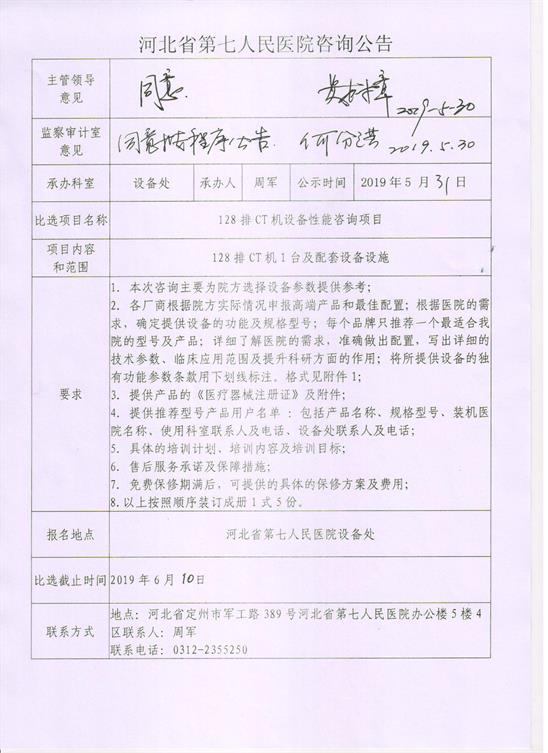 河北省第七人民医院咨询公告
主管领导
意见
同意.
2019-5-30
监察审计室
意见
同意按程序公告.
2019.5.30
承办科室
设备处
承办人
周军
公示时间
2019年5月31日
比选项目名称
128排CT机设备性能咨询项目
项目内容
和范围
128排CT机1台及配套设备设施
要求
1. 本次咨询主要为院方选择设备参数提供参考;
2. 各厂商根据院方实际情况申报高端产品和最佳配置; 根据医院的需
求, 确定提供设备的功能及规格型号; 每个品牌只推荐一个最适合我
院的型号及产品; 详细了解医院的需求, 准确做出配置, 写出详细的
技术参数、临床应用范围及提升科研方面的作用; 将所提供设备的独
有功能参数条款用下划线标注。格式见附件1;
3. 提供产品的《医疗器械注册证》及附件;
4. 提供推荐型号产品用户名单 : 包括产品名称、规格型号、装机医
院名称、使用科室联系人及电话、设备处联系人及电话;
5. 具体的培训计划、培训内容及培训目标;
6. 售后服务承诺及保障措施;
7. 免费保修期满后, 可提供的具体的保修方案及费用;
8. 以上按照顺序装订成册1式5份。
报名地点
河北省第七人民医院设备处
比选截止时间
2019年6月10日
联系方式
地点: 河北省定州市军工路389号河北省第七人民医院办公楼5楼4
区联系人: 周军
联系电话: 0312-2355250